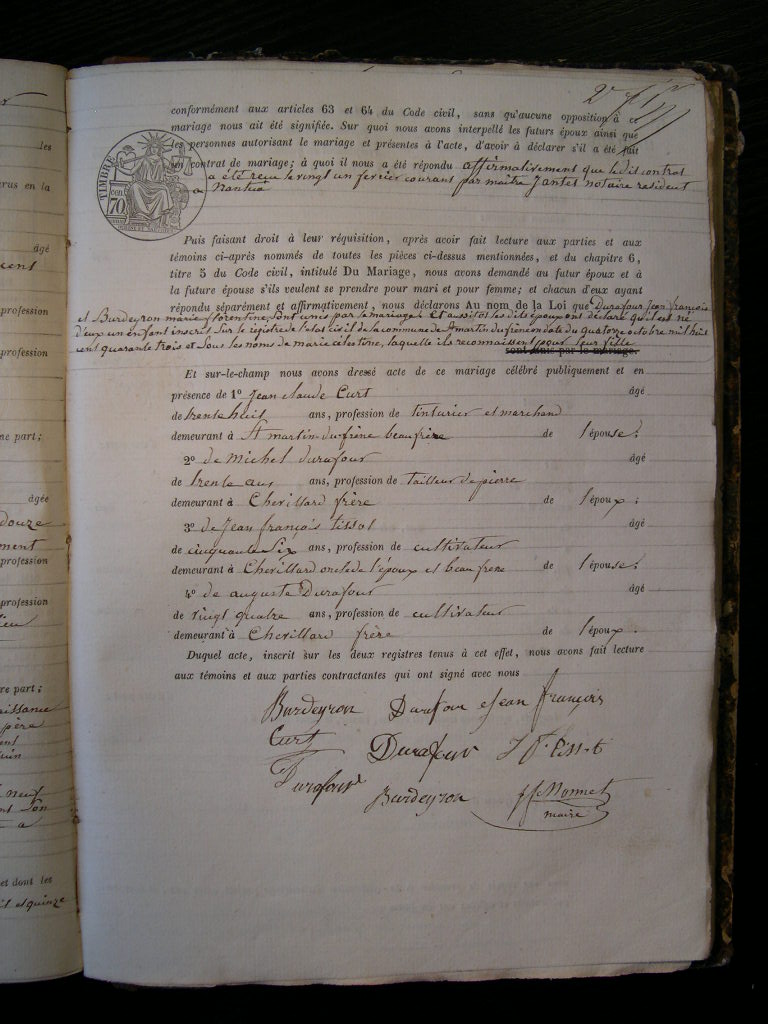 les
rus en la
âgé
profession
profession
ne part;
âgée
douze
ment
profession
profession
re part;
naissance
père
neuf
a
et dont les
et quinze
2e
TIMBRE
70
conformément aux articles 63 et 64 du Code civil, sans qu'aucune opposition à ce
mariage nous ait été signifiée. Sur quoi nous avons interpellé les futurs époux ainsi que
les personnes autorisant le mariage et présentes à l'acte, d'avoir à déclarer s'il a été fait
un contrat de mariage; à quoi il nous a été répondu affirmativement que le dit contrat
a été reçu le vingt un fevrier courant par maître Jantet notaire resident
a Nantua
Puis faisant droit à leur réquisition, après avoir fait lecture aux parties et aux
témoins ci-après nommés de toutes les pièces ci-dessus mentionnées, et du chapitre 6,
titre 5 du Code civil, intitulé Du Mariage, nous avons demandé au futur époux et à
la future épouse s'ils veulent se prendre pour mari et pour femme; et chacun d'eux ayant
répondu séparément et affirmativement, nous déclarons Au nom de la Loi que Durafour Jean françois
et Burdeyron marie florentine, sont unis par le mariage. Et aussitot les dits époux ont déclaré qu'il est né
d'eux un enfant inscrit sur le registre de l'état civil de la commune de St martin du frène en date du quatorze octobre mil huit
cent quarante trois et sous les noms de marie célestine, laquelle ils reconnaissent pour leur fille
sont unis par le mariage.
Et sur-le-champ nous avons dressé acte de ce mariage célébré publiquement et en
présence de 1o Jean claude Curt âgé
de trente huit ans, profession de tinturier et marchand
demeurant à St martin-du-frène beau frère de l'épouse;
2o de Michel durafour âgé
de trente ans ans, profession de tailleur de pierre
demeurant à Chevillard frère de l'époux;
3o de Jean françois tissot âgé
de cinquante six ans, profession de cultivateur
demeurant à Chevillard oncle de l'époux et beau frère de l'épouse;
4o de auguste Durafour âgé
de vingt quatre ans, profession de cultivateur
demeurant à Chevillard frère de l'époux.
Duquel acte, inscrit sur les deux registres tenus à cet effet, nous avons fait lecture
aux témoins et aux parties contractantes qui ont signé avec nous
Burdeyron Durafour Jean françois
Curt Durafour J f. tissot
Durafour Burdeyron Monnet
maire